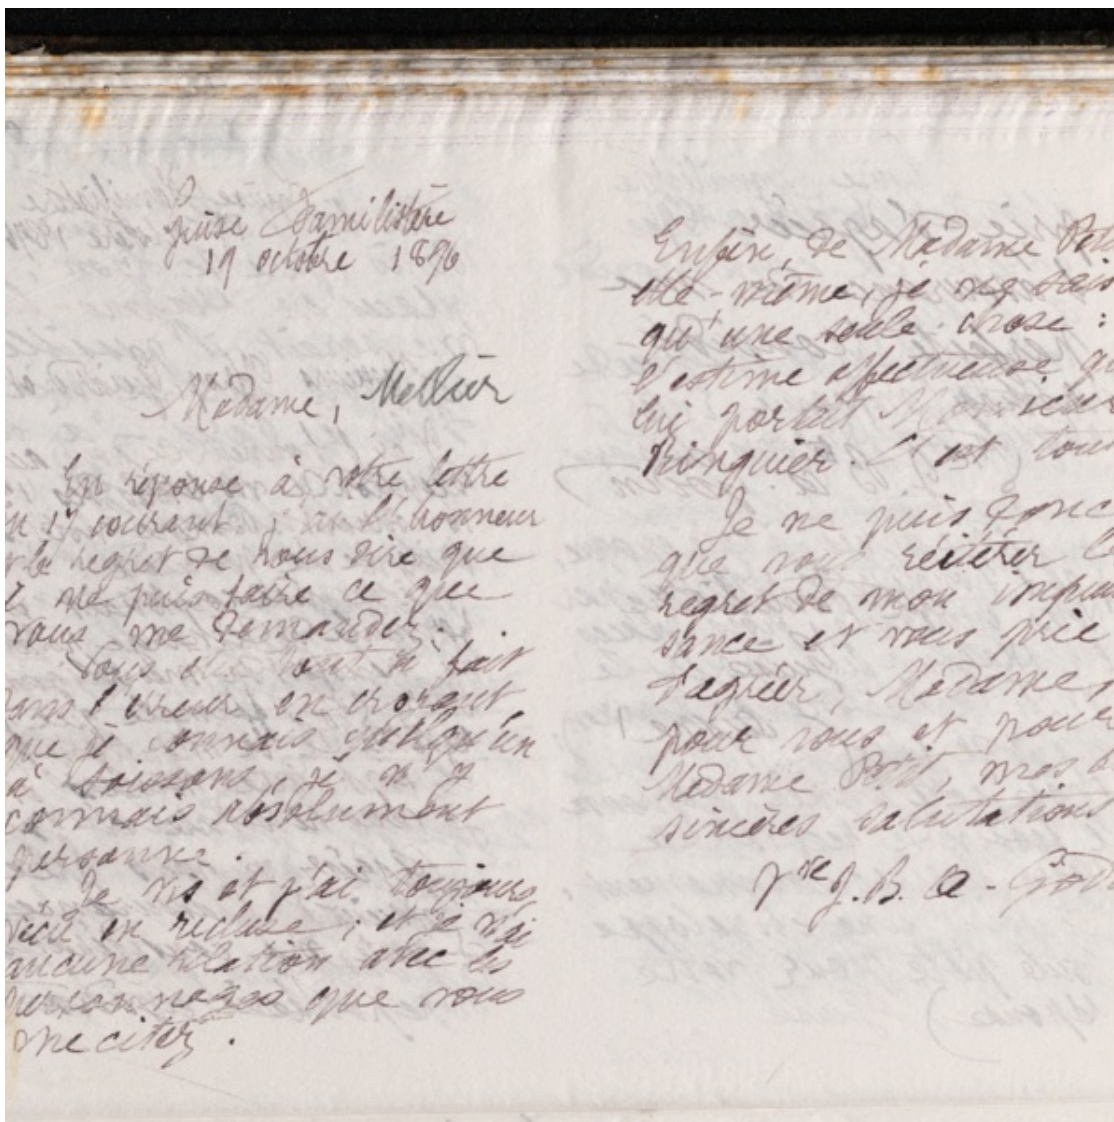 Guise Familistère
19 octobre 1896
Madame, Mellier
En réponse à votre lettre
17 courant, j'ai l'honneur
le regret de vous dire que
ne puis faire ce que
vous me demandez.
Vous êtes tout à fait
ans l'erreur en croyant
que je connais quelqu'un
à Soissons, je n'y
connais absolument
personne.
Je vis et j'ai toujours
vécu en recluse; et je n'ai
aucune relation avec les
personnages que vous
me citez.
Enfin, de Madame Peti
elle-même, je ne sais
qu'une seule chose :
l'estime affectueuse qu
lui portait Monsieur
Kinguier. C'est tou
Je ne puis donc
que vous réitérer l
regret de mon impuis
sance et vous prie
d'agréer, Madame,
pour vous et pour
Madame Petit, mes
sincères salutations
Vve J. B. A. God